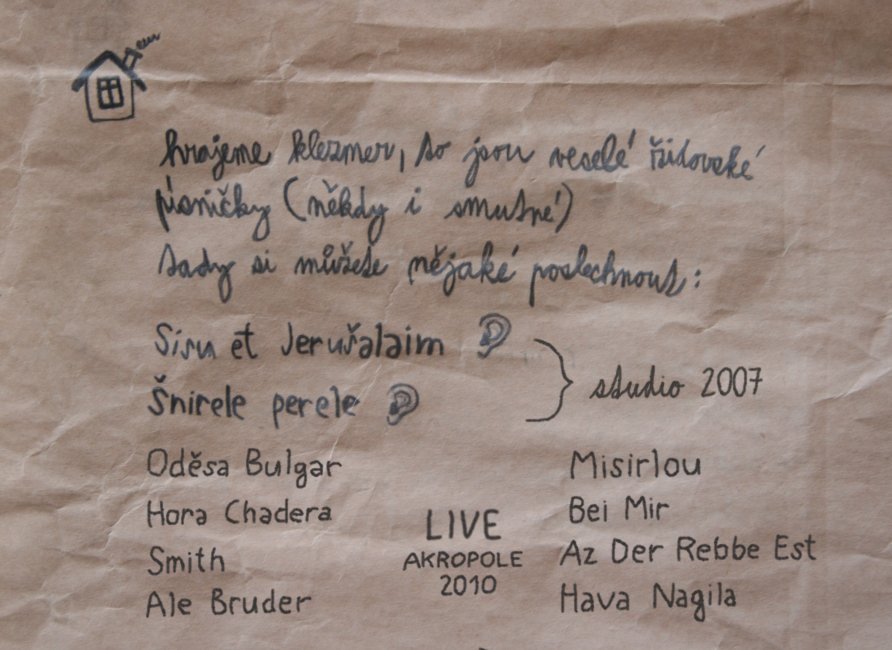 hrajeme klezmer, to jsou veselé židovské
písničky (někdy i smutné)
tady si můžete nějaké poslechnout:
Sisu et Jerušalaim
Šnirele perele
studio 2007
Oděsa Bulgar
Hora Chadera
Smith
Ale Bruder
LIVE
AKROPOLE
2010
Misirlou
Bei Mir
Az Der Rebbe Est
Hava Nagila